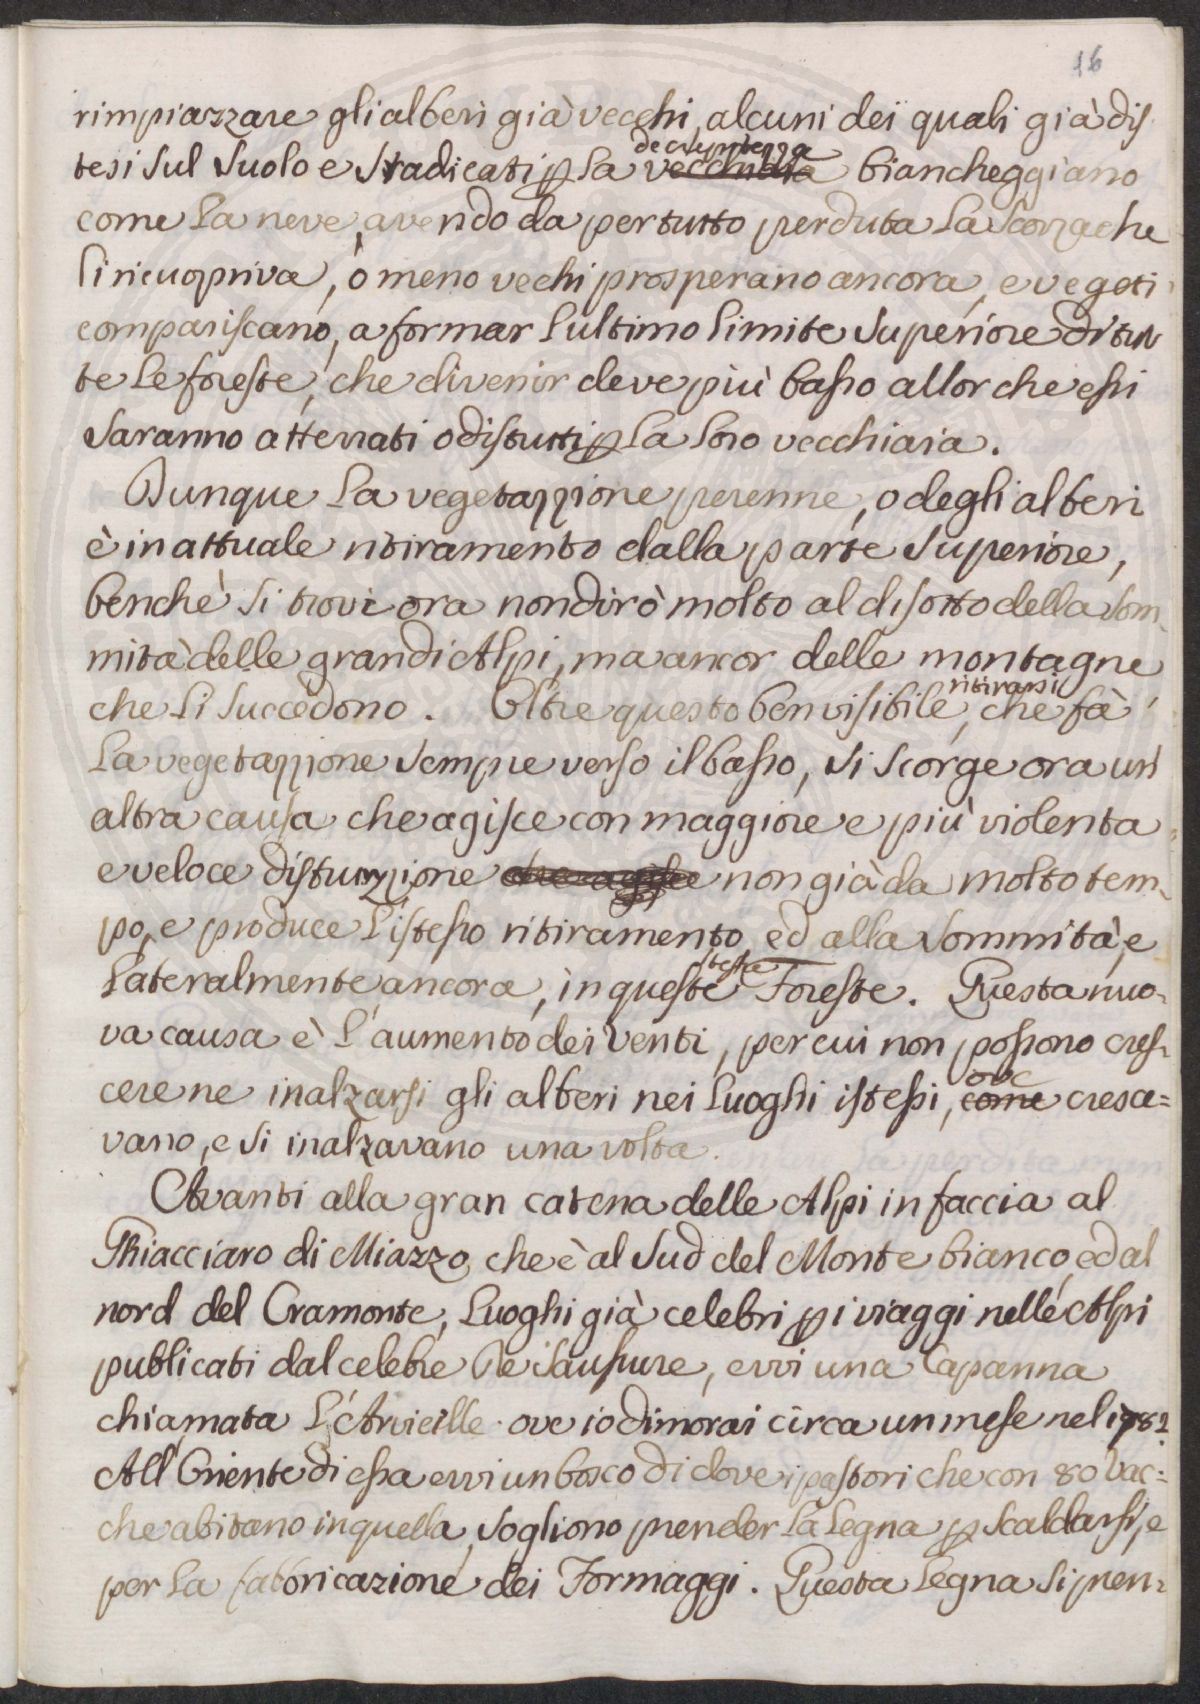 16
rimpiazzare gli alberi già vecchi, alcuni dei quali già dis
tesi sul suolo e sradicati p la decrepitezza vecchiaia biancheggiano
come la neve, avendo da pertutto perduta la scorza che
li ricuopriva, ò meno vechi prosperano ancora, e vegeti
compariscano, a formar l'ultimo limite superiore di tut
te le foreste, che divenir deve più basso allor che essi
saranno atterrati o distrutti p la loro vecchiaia.
Dunque la vegetazzione perenne, o degli alberi
è in attuale ritiramento dalla parte superiore,
benchè si trovi ora non dirò molto al disotto della som
mità delle grandi Alpi, ma ancor delle montagne
che li succedono. Oltre questo ben visibile ritirarsi, che fà
la vegetazzione sempre verso il basso, si scorge ora un'
altra causa che agisce con maggiore e più violenta
e veloce distruzzione che agisce non già da molto tem-
po, e produce l'istesso ritiramento ed alla sommità, e
lateralmente ancora, in queste stesse Foreste. Questa nuo-
va causa è l'aumento dei venti, per cui non possono cres-
cere ne inalzarsi gli alberi nei luoghi istessi, ove come cresce=
vano, e si inalzavano una volta.
Avanti alla gran catena delle Alpi in faccia al
Ghiacciaro di Miazzo, che è al Sud del Monte bianco, ed al
nord del Cramonte, luoghi già celebri p i viaggi nelle Alpi
publicati dal celebre De Saussure, evvi una Capanna
chiamata L'Arvieille ove io dimorai circa un mese nel 1782.
All'Oriente di essa evvi un bosco di dove i pastori che con 80 vac=
che abitano in quella, sogliono prender la legna p scaldarsi, e
per la fabbricazione dei Formaggi. Questa legna si pren-